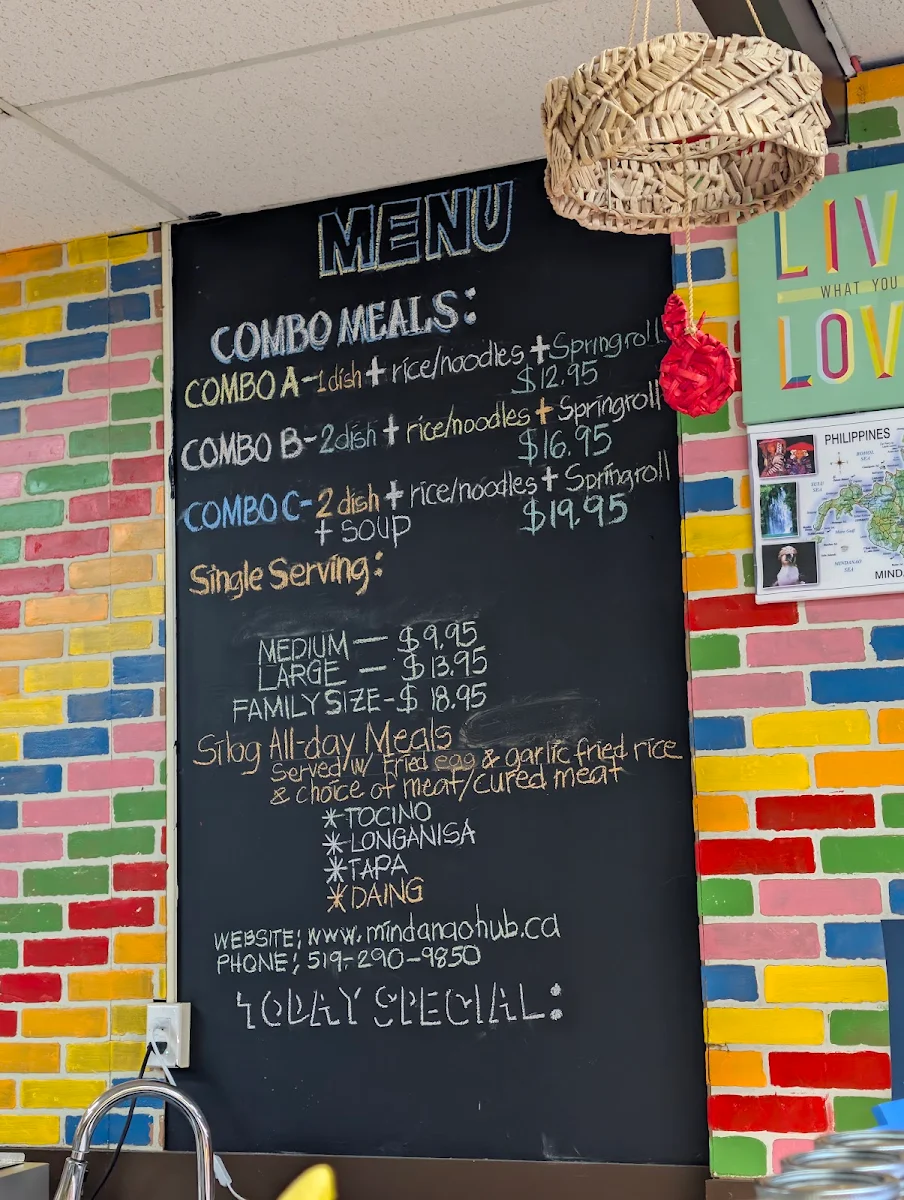 MENU
COMBO MEALS:
COMBO A-1dish + rice/noodles + Springroll
$12.95
COMBO B-2dish + rice/noodles + Springroll
$16.95
COMBO C-2 dish + rice/noodles + Springroll
+ soup $19.95
Single Serving:
MEDIUM — $9.95
LARGE — $13.95
FAMILY SIZE-$ 18.95
Silog All-day Meals
Served w/ Fried egg & garlic fried rice
& choice of meat/cured meat
*TOCINO
*LONGANISA
*TAPA
*DAING
WEBSITE: www.mindanaohub.ca
PHONE: 519-290-9850
TODAY SPECIAL:
LIV
WHAT YOU
LOV
PHILIPPINES
MINDA